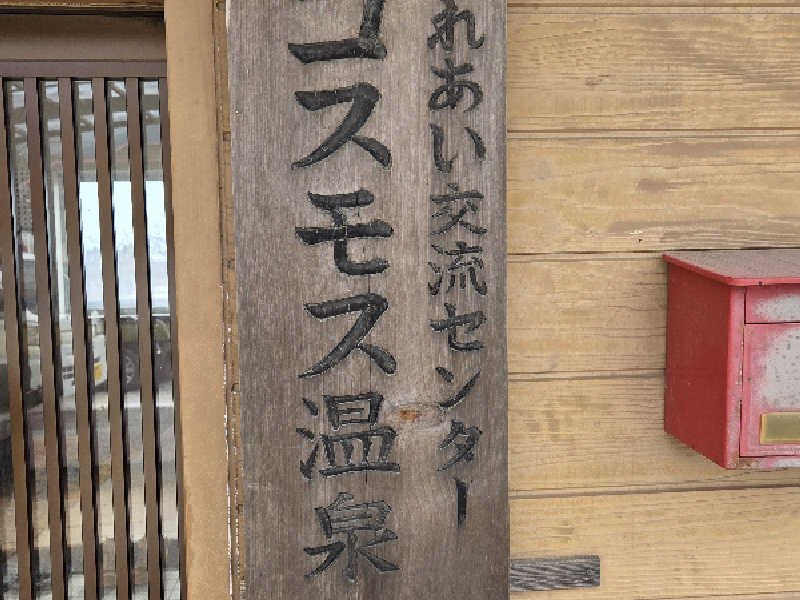 れあい交流センター
コスモス温泉